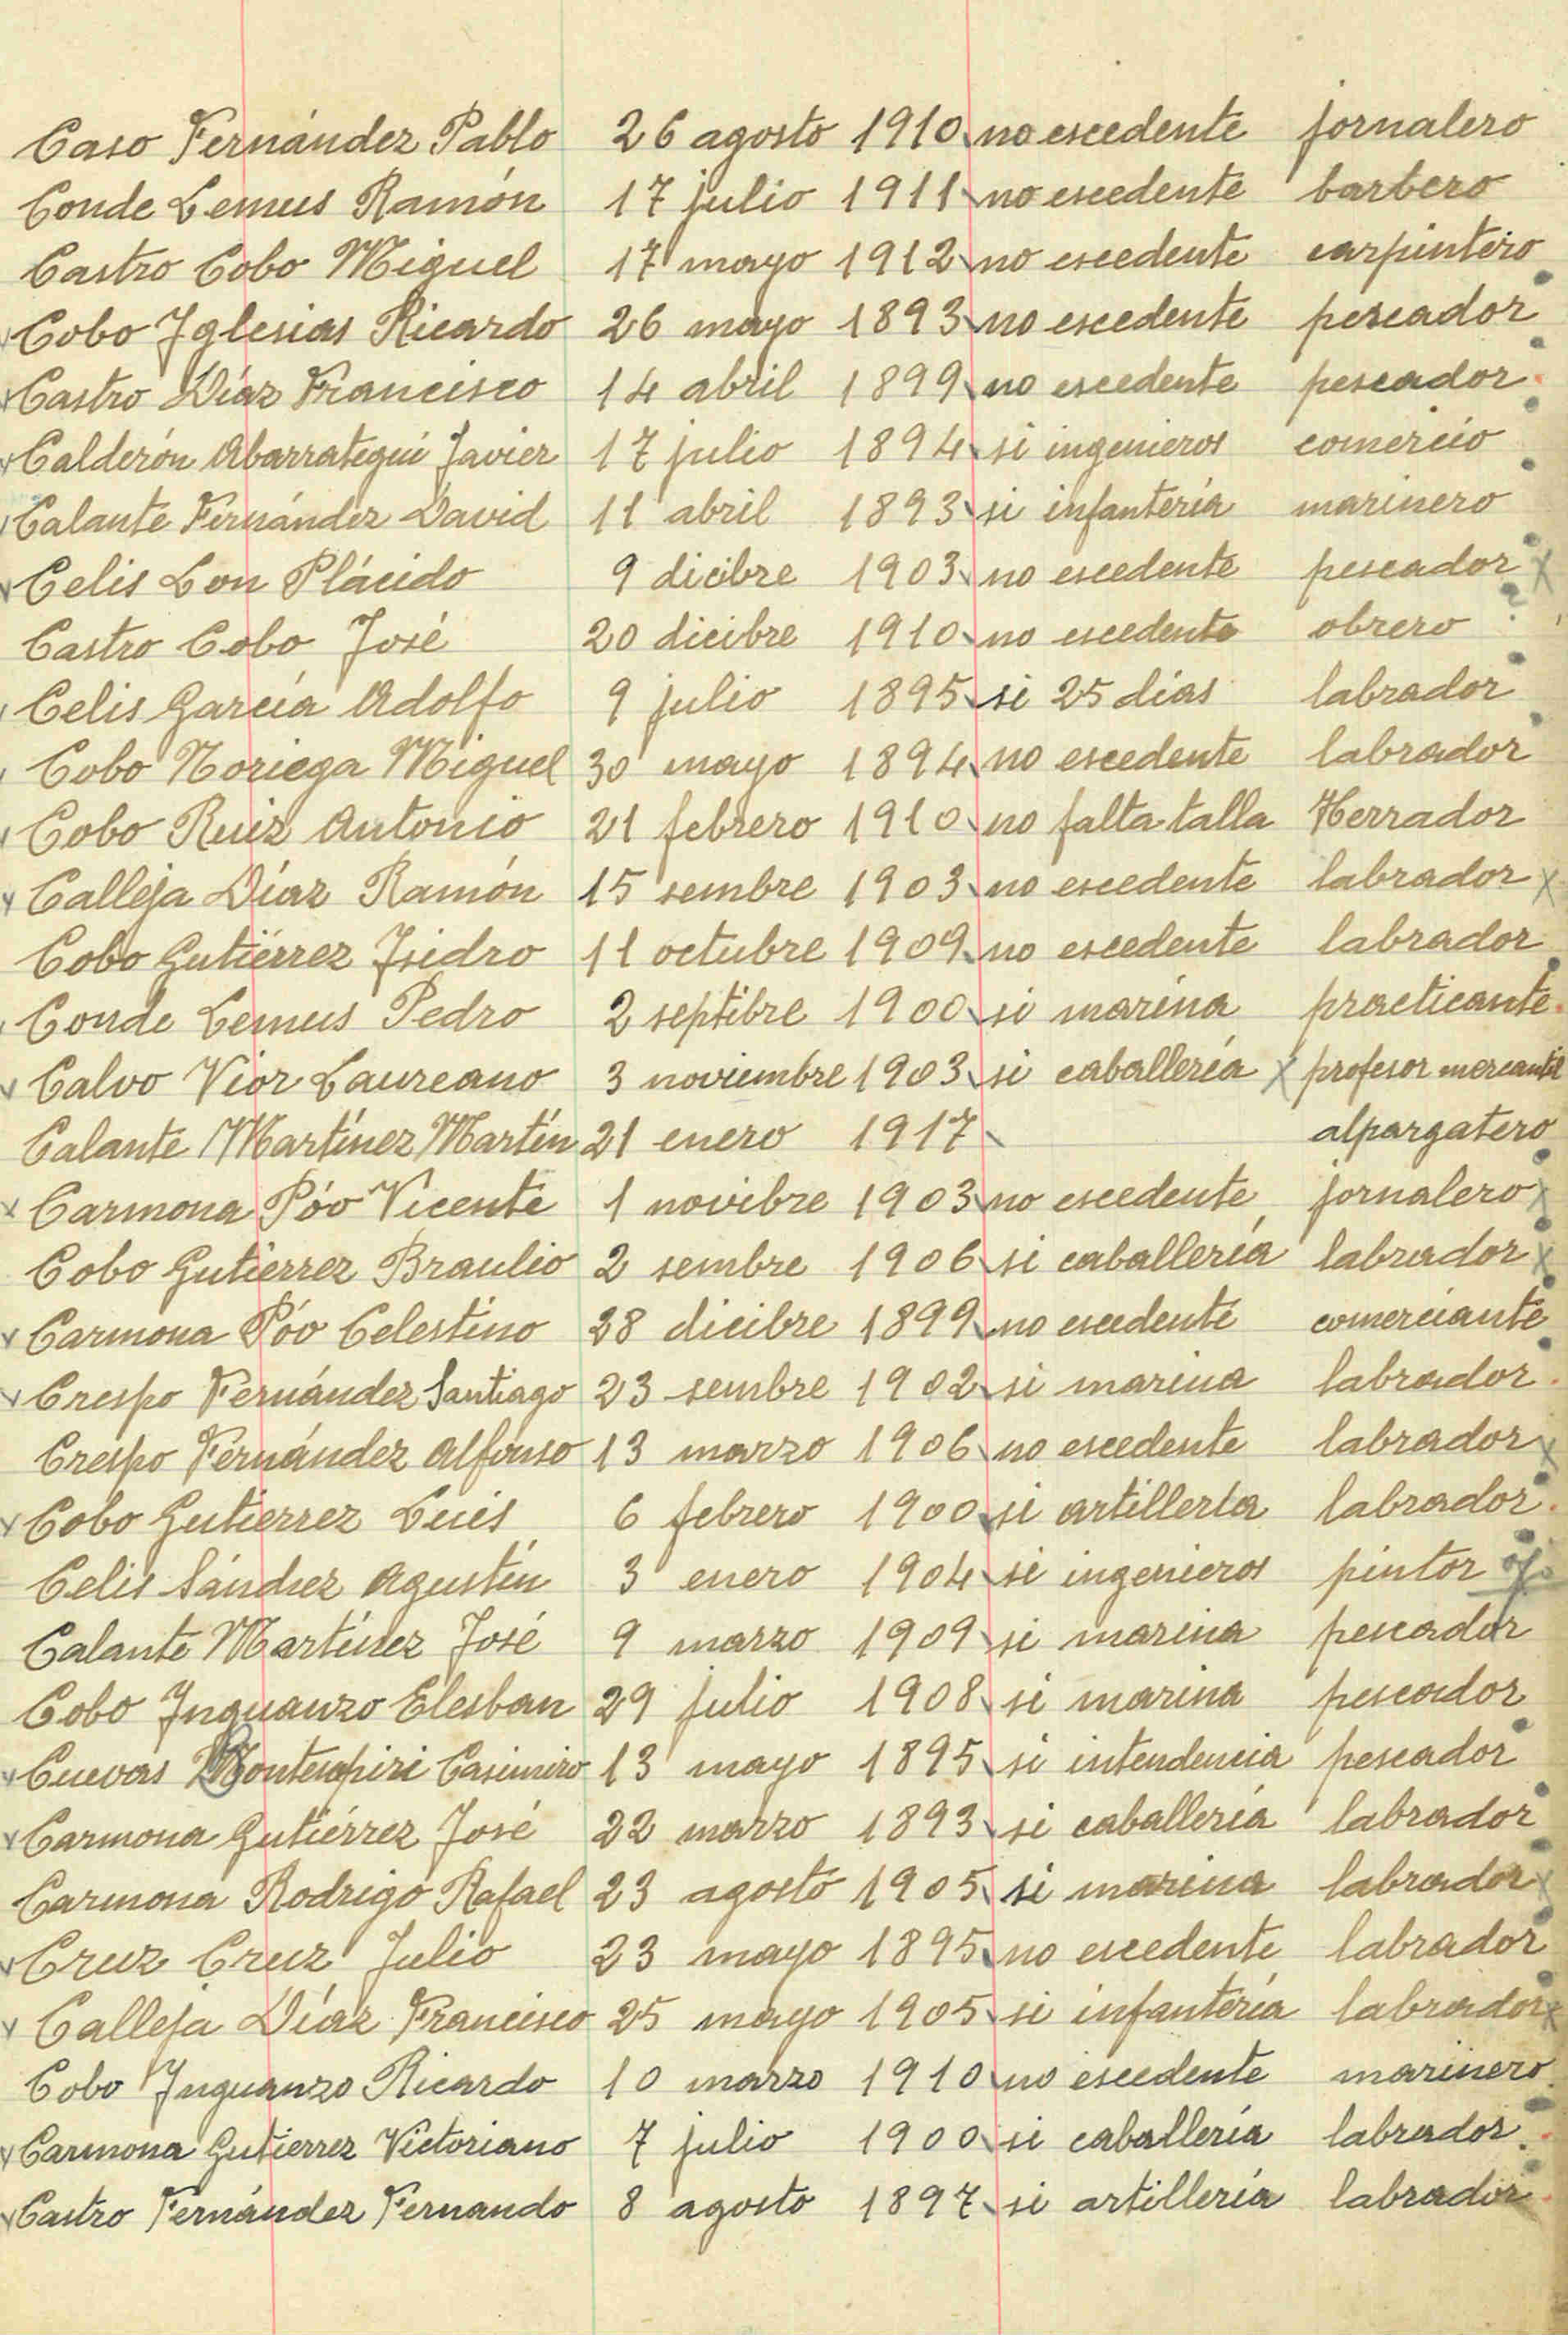 Caso Fernández Pablo 26 agosto 1910 no escedente jornalero
Conde Lemus Ramón 17 julio 1911 no escedente barbero
Castro Cobo Miguel 17 mayo 1912 no escedente carpintero
Cobo Iglesias Ricardo 26 mayo 1893 no escedente pescador
Castro Díaz Francisco 14 abril 1899 no escedente pescador
Calderón Abarrategui Javier 17 julio 1894 si ingenieros comercio
Calante Fernández David 11 abril 1893 si infantería marinero
Celis Lon Plácido 9 dicibre 1903 no escedente pescador x
Castro Cobo José 20 dicibre 1910 no escedente obrero ?
Celis García Adolfo 9 julio 1895 si 25 días labrador
Cobo Noriega Miguel 30 mayo 1894 no escedente labrador
Cobo Ruiz Antonio 21 febrero 1910 no falta talla Herrador
Calleja Díaz Ramón 15 sembre 1903 no escedente labrador x
Cobo Gutiérrez Isidro 11 octubre 1909 no escedente labrador
Conde Lemus Pedro 2 septibre 1900 si marina practicante
Calvo Vior Laureano 3 noviembre 1903 si caballería x profesor mercantil
Calante Martínez Martín 21 enero 1917 alpargatero
Carmona Póo Vicente 1 novibre 1903 no escedente jornalero x
Cobo Gutierrez Braulio 2 sembre 1906 si caballería labrador x
Carmona Póo Celestino 28 dicibre 1899 no escedente comerciante
Crespo Fernández Santiago 23 sembre 1902 si marina labrador
Crespo Fernández Alfonso 13 marzo 1906 no escedente labrador x
Cobo Gutierrez Luis 6 febrero 1900 si artillería labrador
Celis Sánchez Agustín 3 enero 1904 si ingenieros pintor
Calante Martínez José 9 marzo 1909 si marina pescador
Cobo Inguanzo Elesban 29 julio 1908 si marina pescador
Cuevas Casimiro 13 mayo 1895 si intendencia pescador
Carmona Gutiérrez José 22 marzo 1893 si caballería labrador
Carmona Rodrigo Rafael 23 agosto 1905 si marina labrador x
Cruz Cruz Julio 23 mayo 1895 no escedente labrador
Calleja Díaz Francisco 25 mayo 1905 si infantería labrador x
Cobo Inguanzo Ricardo 10 marzo 1910 no escedente marinero
Carmona Gutierrez Victoriano 7 julio 1900 si caballería labrador
Castro Fernández Fernando 8 agosto 1897 si artillería labrador